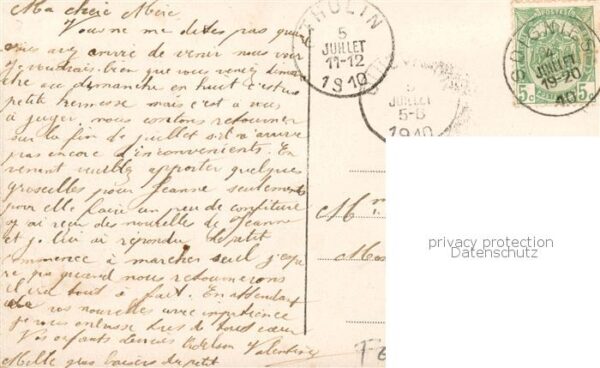 Ma chère Mère
Vous ne me dites pas quand
vous avez envie de venir nous voir
je voudrais bien que vous venez
ou dimanche en huit c'est
petite mais c'est à vous
à juger, nous comptons retourner
sur la fin de juillet s'il n'arrive
pas encore d'inconvenients. En
venant veuillez apporter quelques
groseilles pour Jeanne seulement
pour elle faire un peu de confiture
j'ai reçu des nouvelles de Jeanne
et je lui ai répondu le petit
commence à marcher seul j'espère
pas quand nous retournerons
il ira tout à fait. En attendant
de vos nouvelles avec impatience
je vous embrasse très de tout cœur
Vos enfants Valentine
Mille gros baisers du petit
THULIN
5
JUILLET
11-12
1910
5
JUILLET
5-6
1910
SOIGNIES
4
JUILLET
19-20
1910
5c 5c
M
privacy protection
Datenschutz